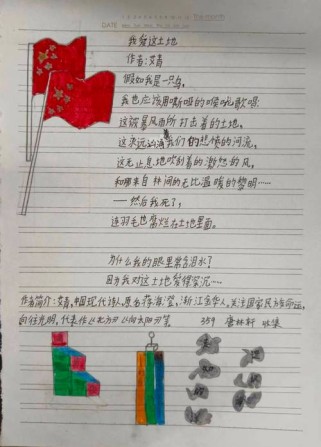 DATE
我爱这土地
作者:艾青
假如我是一只鸟,
我也应该用嘶哑的喉咙歌唱:
这被暴风雨所打击着的土地,
这永远汹涌着我们的悲愤的河流,
这无止息地吹刮着的激怒的风,
和那来自林间的无比温暖的黎明……
——然后我死了,
连羽毛也腐烂在土地里面。
为什么我的眼里常含泪水?
因为我对这土地爱得深沉……
作者简介:艾青,中国现代诗人,原名蒋海澄,浙江金华人,关注国家民族命运,
向往光明,代表作《北方》《向太阳》等。 359 收集